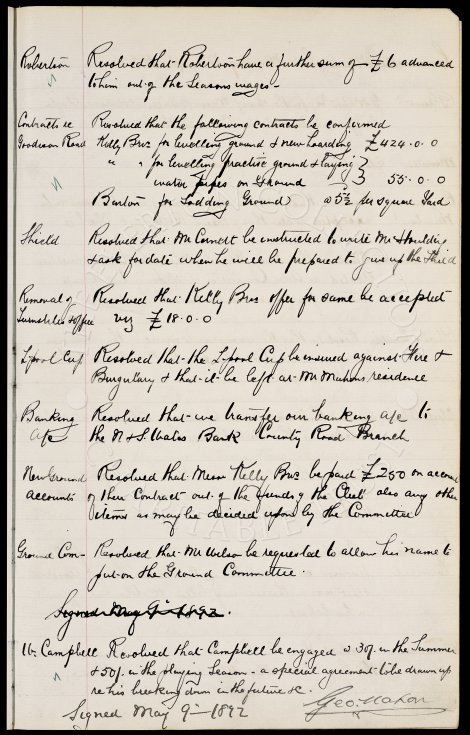 Robertson Resolved that Robertson have a further sum of £6 advanced
to him out of the Seasons wages -
Contracts re Resolved that the following contracts be confirmed
Goodison Road Kelly Bros for levelling ground & new hoarding £424.0.0
" " for levelling practice ground & laying }
water pipes on Ground } 55.0.0
Barton for Sodding Ground @ 5½ᵈ per square Yard
Shield Resolved that Mr Cornett be instructed to write Mr Houlding
& ask for date when he will be prepared to give up the Shield
Removal of Resolved that Kelly Bros offer for same be accepted
Turnstiles & office viz £18.0.0
L'pool Cup Resolved that the L'pool Cup be insured against Fire &
Burglary & that it be left at Mr Mahons residence
Banking Resolved that we transfer our banking a/c to
a/c the N & S Wales Bank County Road Branch
New Ground Resolved that Messr Kelly Bros be paid £250 on account
accounts of their Contract out of the funds of the Club also any other
items as may be decided upon by the Committee
Ground Com- Resolved that Mr Wilson be requested to allow his name to
put on the Ground Committee.
Signed May 9th 1892.
Campbell Resolved that Campbell be engaged @ 30/. in the Summer
& 50/. in the playing Season - a special agreement to be drawn up
re his breaking down in the future &c.
Signed May 9th 1892 Geo: Mahon